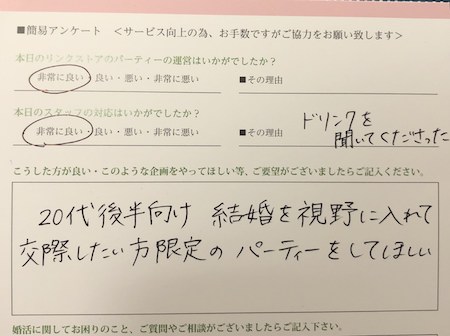 ■簡易アンケート <サービス向上の為、お手数ですがご協力をお願い致します>
本日のリンクストアのパーティーの運営はいかがでしたか?
非常に良い・良い・悪い・非常に悪い ■その理由
本日のスタッフの対応はいかがでしたか?
非常に良い・良い・悪い・非常に悪い ■その理由 ドリンクを
聞いてくださった
こうした方が良い・このような企画をやってほしい等、ご要望がございましたらご記入ください。
20代後半向け 結婚を視野に入れて
交際したい方限定の パーティーをしてほしい
婚活に関してお困りのこと、ご質問やご相談がございましたらご記入下さい。